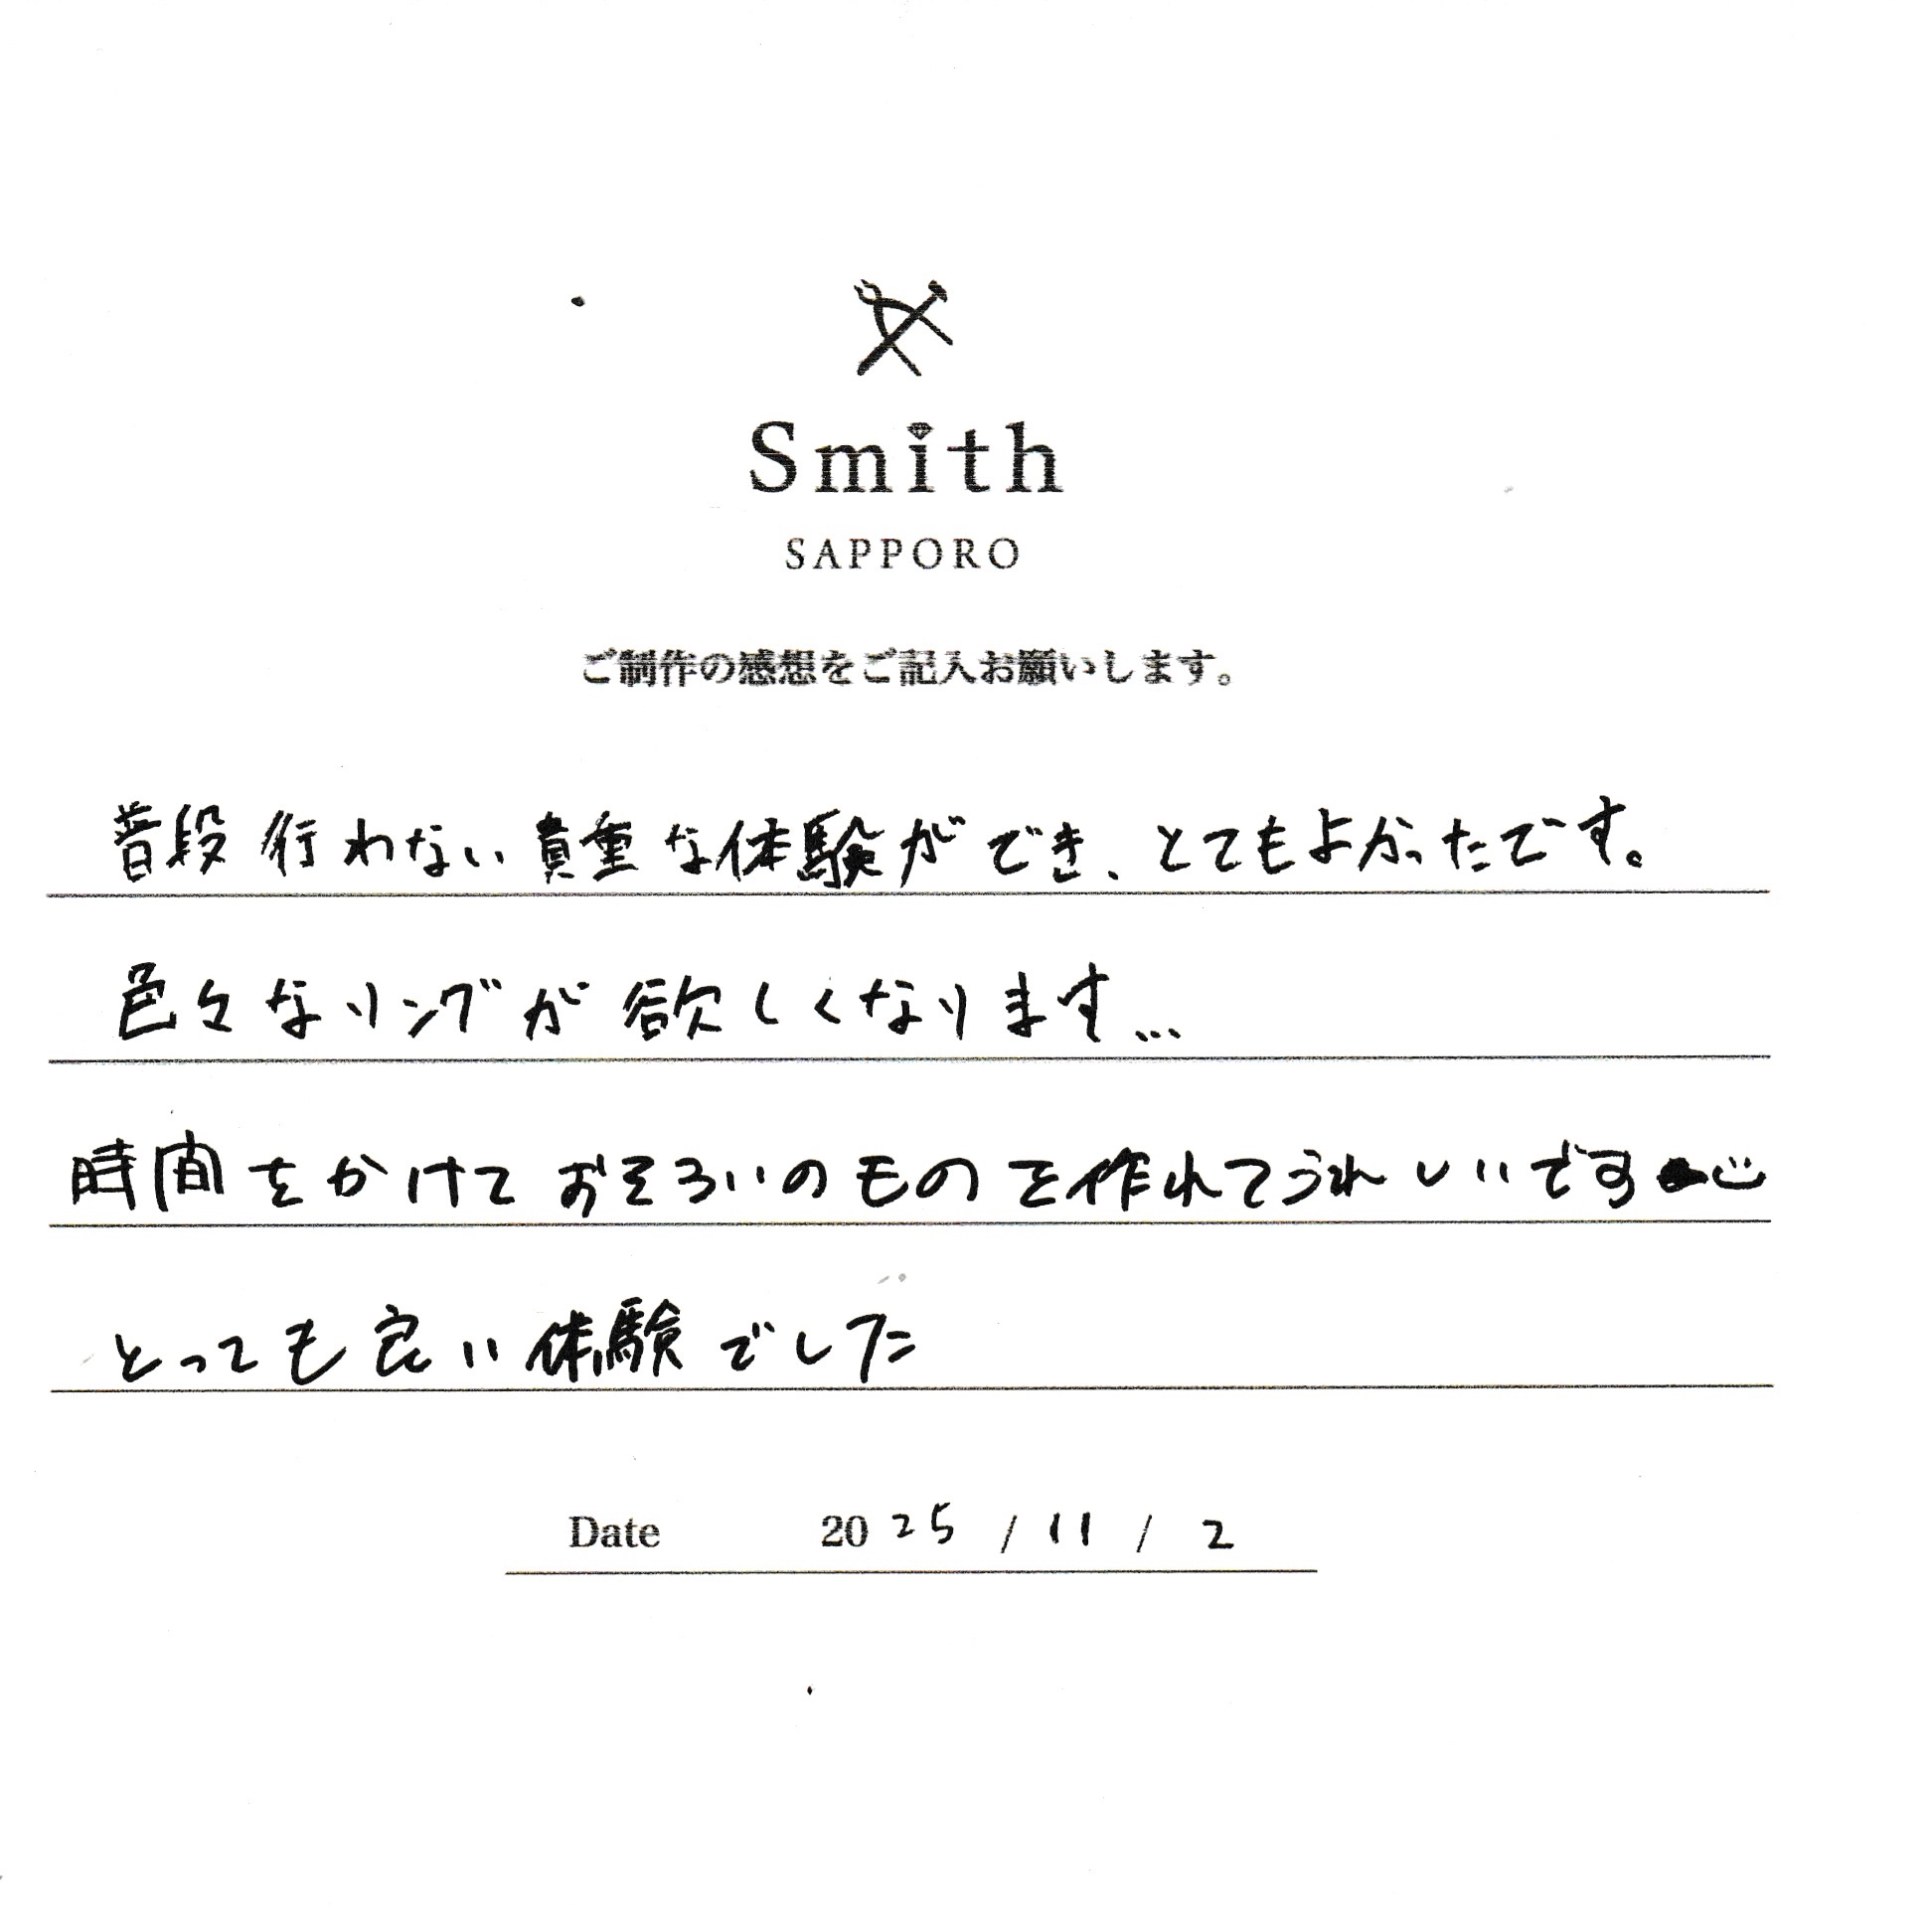 Smith
SAPPORO
ご制作の感想をご記入お願いします。
普段行わない貴重な体験ができ、とてもよかったです。
色々なリングが欲しくなります...
時間をかけておそろいのものを作れてうれしいです
とっても良い体験でした
Date 2025 / 11 / 2